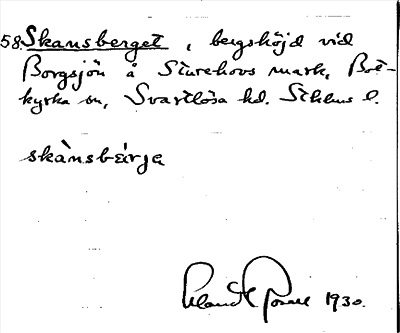 58. Skansberget, bergshöjd vid
Borgsjön å Sturehovs mark, Bot-
kyrka sn, Svartlösa hd. Sthlms l.
skànsbèrje
1930.